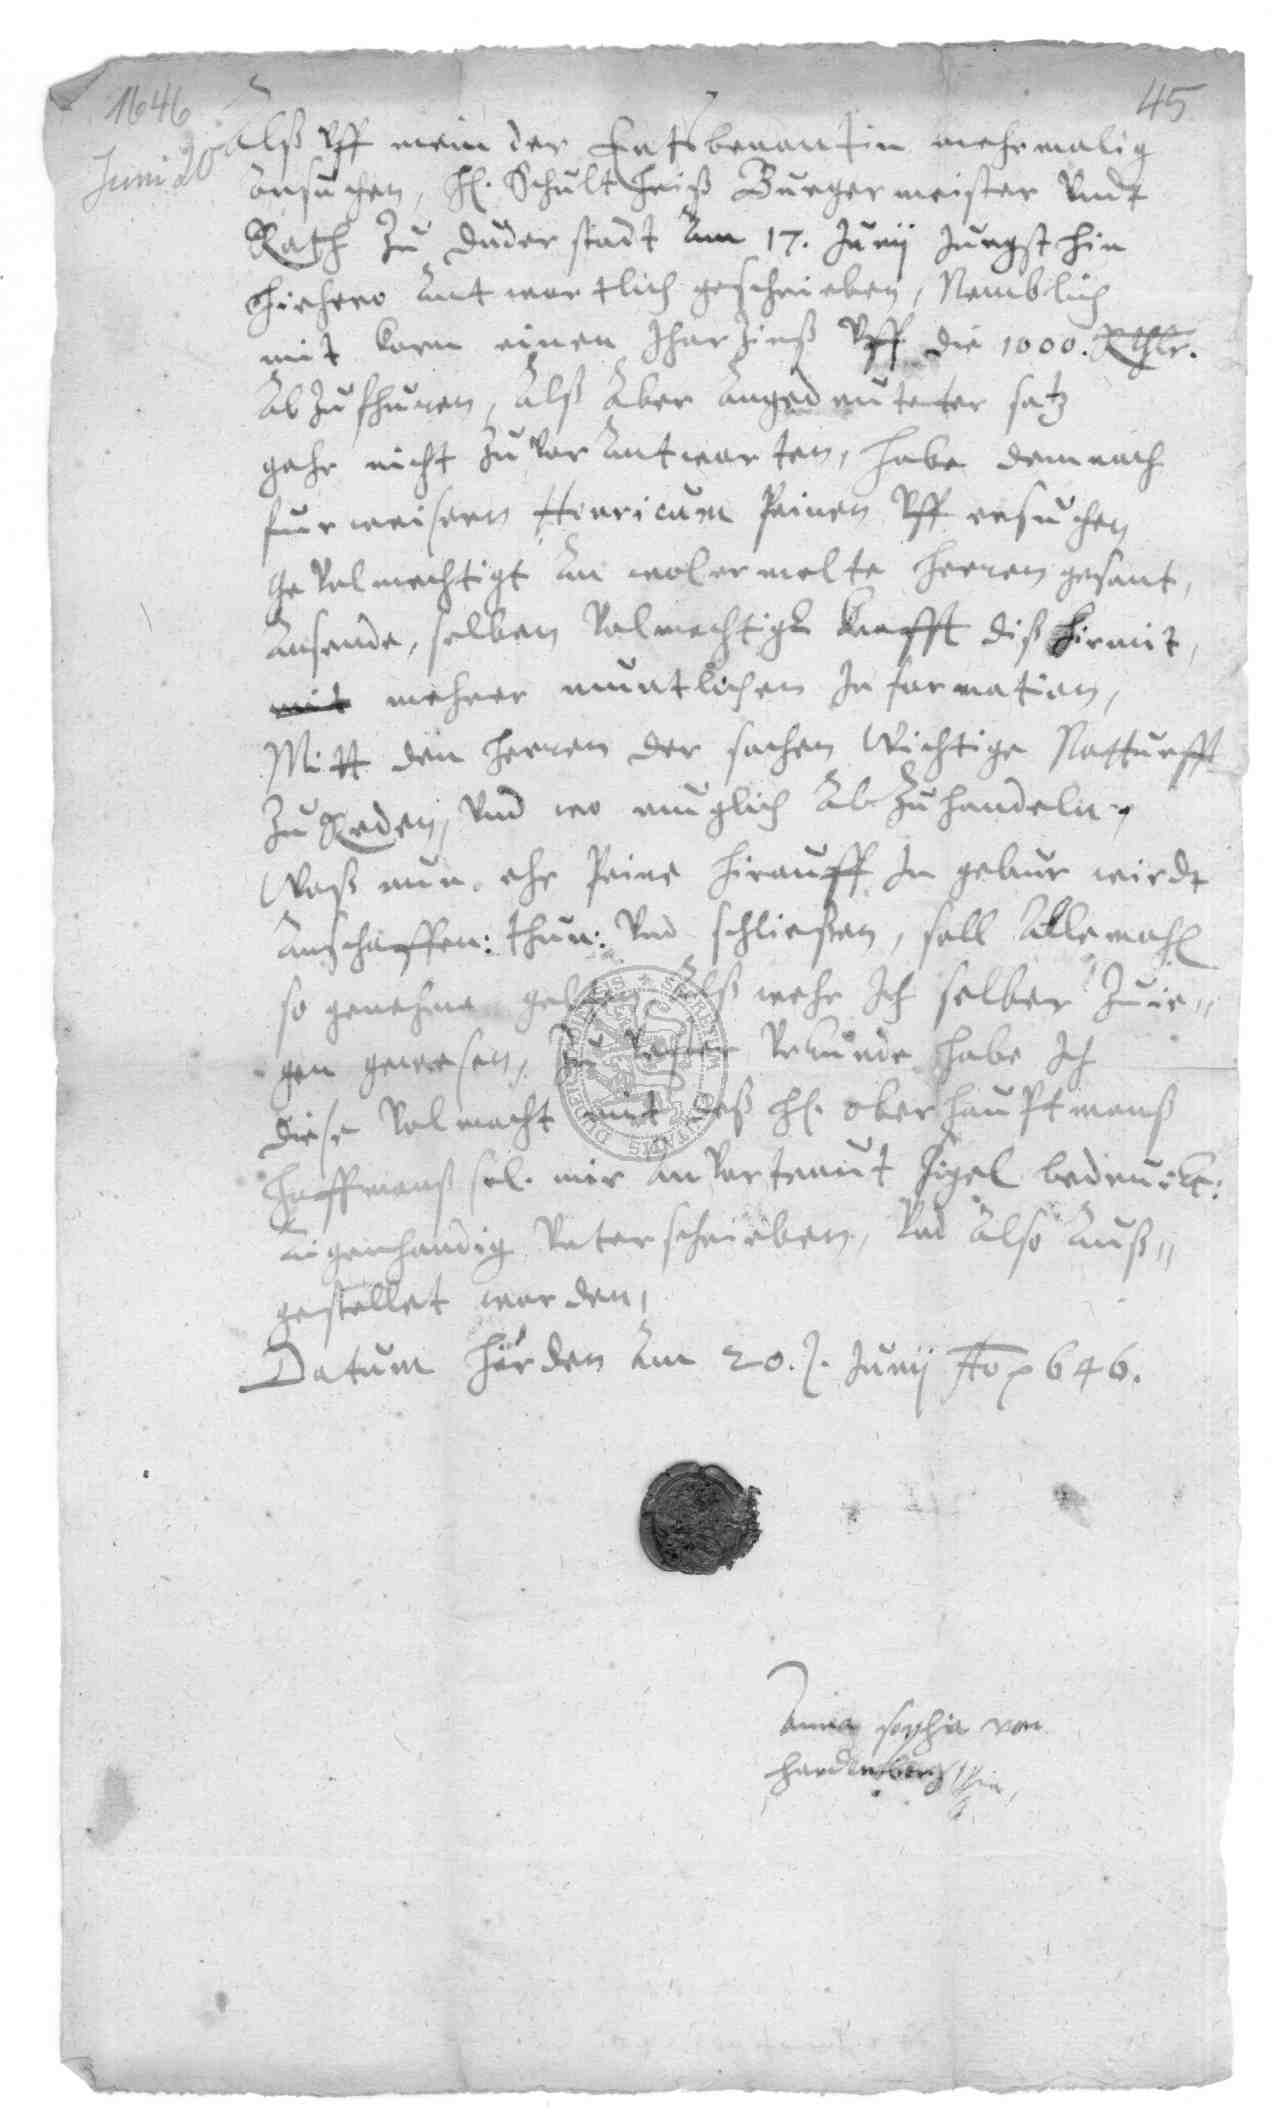 1646
45
Juni 20
Alß vff mein der Entsbenantin mehrmalig
ansuchen, H. Schultheiß Burgermeister vndt
Rath zu Duderstadt am 17. Junij Jungsthin
hiehero antwortlich geschrieben, Nemblich
mit korn einen Jharzinß vff die 1000. Rthlr.
abzufhuren, alß aber angedeuteter satz
gahr nicht zu verantworten, habe demnach
furweisern Henricum Peinen vff ersuchen
gevolmechtigt an wolermelte herren gesant,
ansende, selben volmechtige krafft diß hirmit,
mit mehrer muntlichen Information,
Mitt den herren der sachen Wichtige Notturfft
zu Reden, vnd wo muglich abzuhandeln,
Waß nun ehr Peine hirauff In gebur wirdt
anschaffen: thun: vnd schließen, soll allemahl
so genehme gelten alß wehr Ich selber zuie-
gen gewesen, Zu vester vrkunde habe Ich
diese volmacht mit deß H. oberhauptmanß
Hoffmanß sel. mir anvertraut Sigel bedruckt:
aigenhandig vnterschrieben, vnd also auß-
gestellet worden,
Datum Hörden am 20. Junij Ao 1646.
Anna sophia von
hardenberg